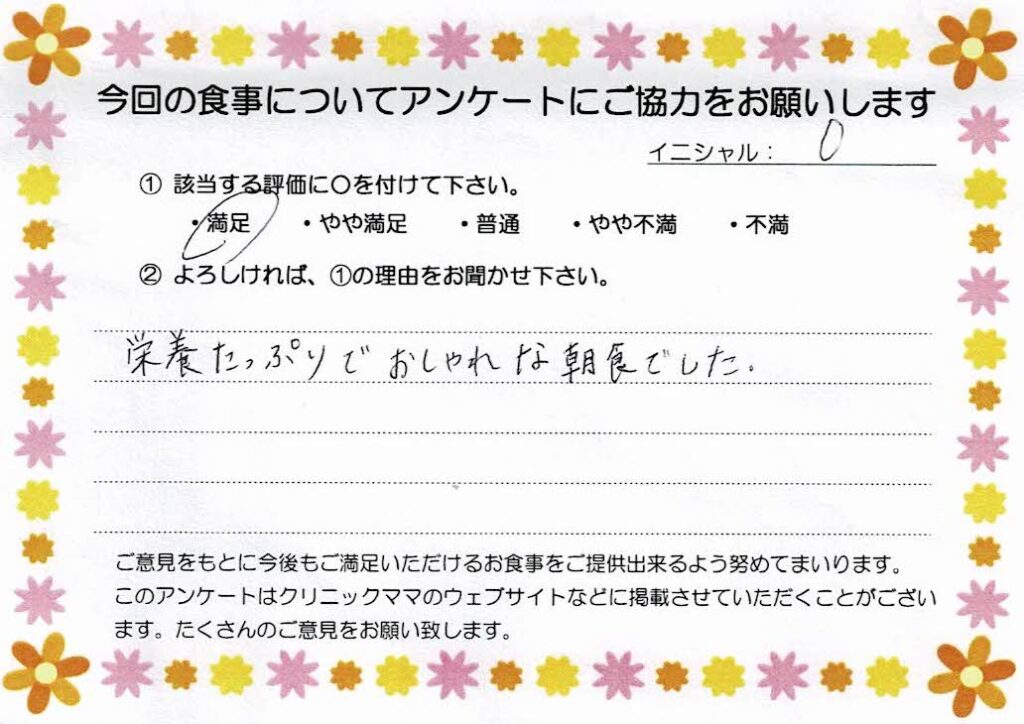 今回の食事についてアンケートにご協力をお願いします
イニシャル： O
① 該当する評価に〇を付けて下さい。
・満足 ・やや満足 ・普通 ・やや不満 ・不満
② よろしければ、①の理由をお聞かせ下さい。
栄養たっぷりでおしゃれな朝食でした.
ご意見をもとに今後もご満足いただけるお食事をご提供出来るよう努めてまいります。
このアンケートはクリニックママのウェブサイトなどに掲載させていただくことがござい
ます。たくさんのご意見をお願い致します。